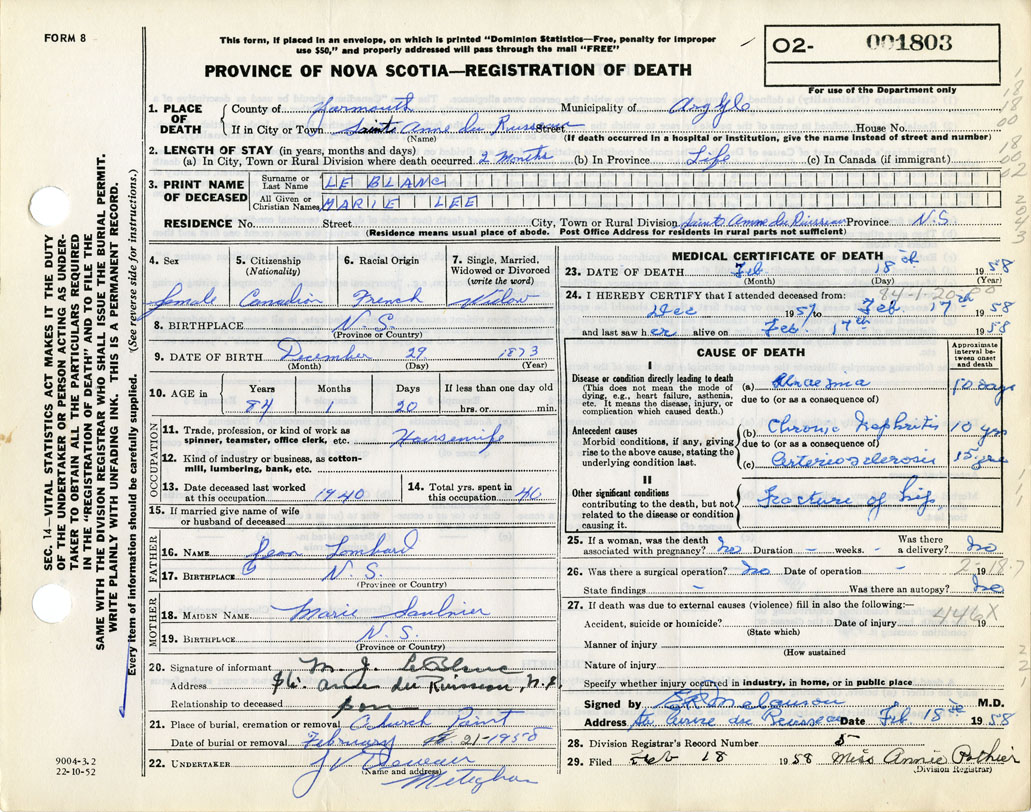 FORM 8
This form, if placed in an envelope, on which is printed "Dominion Statistics—Free, penalty for improper
use $50," and properly addressed will pass through the mail "FREE"
O2- 001803
For use of the Department only
PROVINCE OF NOVA SCOTIA—REGISTRATION OF DEATH
1. PLACE OF DEATH
County of Yarmouth Municipality of Argyle
If in City or Town Sainte Anne du Ruisseau Street House No.
(Name) (If death occurred in a hospital or institution, give the name instead of street and number)
2. LENGTH OF STAY (in years, months and days)
(a) In City, Town or Rural Division where death occurred 2 Months (b) In Province Life (c) In Canada (if immigrant)
3. PRINT NAME OF DECEASED
Surname or Last Name LE BLANC
All Given or Christian Names MARIE LEE
RESIDENCE No. Street City, Town or Rural Division Sainte Anne du Ruisseau Province N.S.
(Residence means usual place of abode. Post Office Address for residents in rural parts not sufficient)
4. Sex 5. Citizenship (Nationality) 6. Racial Origin 7. Single, Married, Widowed or Divorced (write the word)
female Canadian French Widow
8. BIRTHPLACE N.S.
(Province or Country)
9. DATE OF BIRTH December 29 1873
(Month) (Day) (Year)
10. AGE in Years Months Days If less than one day old
84 1 20 hrs. or min.
OCCUPATION
11. Trade, profession, or kind of work as spinner, teamster, office clerk, etc. Housewife
12. Kind of industry or business, as cotton-mill, lumbering, bank, etc.
13. Date deceased last worked at this occupation 1940 14. Total yrs. spent in this occupation 40
15. If married give name of wife or husband of deceased
FATHER
16. NAME Jean Lombard
17. BIRTHPLACE N.S.
(Province or Country)
MOTHER
18. MAIDEN NAME Marie Saulnier
19. BIRTHPLACE N.S.
(Province or Country)
20. Signature of informant M. J. LeBlanc
Address Ste. Anne du Ruisseau, N.S.
Relationship to deceased son
21. Place of burial, cremation or removal Church Point
Date of burial or removal February 21-1958
22. UNDERTAKER
(Name and address)
Meteghan
MEDICAL CERTIFICATE OF DEATH
23. DATE OF DEATH Feb 18th 1958
(Month) (Day) (Year)
84-1-20
24. I HEREBY CERTIFY that I attended deceased from:
Dec 1957 to Feb. 17th 1958
and last saw her alive on Feb 17th 1958
CAUSE OF DEATH
Approximate interval between onset and death
I
Disease or condition directly leading to death
(This does not mean the mode of dying, e.g., heart failure, asthenia, etc. It means the disease, injury, or complication which caused death.)
(a) Uraemia 10 days
due to (or as a consequence of)
Antecedent causes
Morbid conditions, if any, giving rise to the above cause, stating the underlying condition last.
(b) Chronic Nephritis 10 yrs
due to (or as a consequence of)
(c) Arteriosclerosis 15 yrs
II
Other significant conditions
contributing to the death, but not related to the disease or condition causing it.
Fracture of hip.
25. If a woman, was the death associated with pregnancy? No Duration - weeks. - Was there a delivery? No
26. Was there a surgical operation? No Date of operation - 19
2-18-7
State findings - Was there an autopsy? No
27. If death was due to external causes (violence) fill in also the following:—
446X
Accident, suicide or homicide? Date of injury 19
(State which)
Manner of injury
(How sustained
Nature of injury
Specify whether injury occurred in industry, in home, or in public place
Signed by Melanson M.D.
Address Ste Anne du Ruisseau Date Feb 18th 1958
28. Division Registrar's Record Number 5
29. Filed Feb 18 1958 Miss Annie Pothier
(Division Registrar)
9004-3.2
22-10-52
SEC. 14—VITAL STATISTICS ACT MAKES IT THE DUTY
OF THE UNDERTAKER OR PERSON ACTING AS UNDER-
TAKER TO OBTAIN ALL THE PARTICULARS REQUIRED
IN THE "REGISTRATION OF DEATH" AND TO FILE THE
SAME WITH THE DIVISION REGISTRAR WHO SHALL ISSUE THE BURIAL PERMIT.
WRITE PLAINLY WITH UNFADING INK. THIS IS A PERMANENT RECORD.
Every item of information should be carefully supplied. (See reverse side for instructions.)